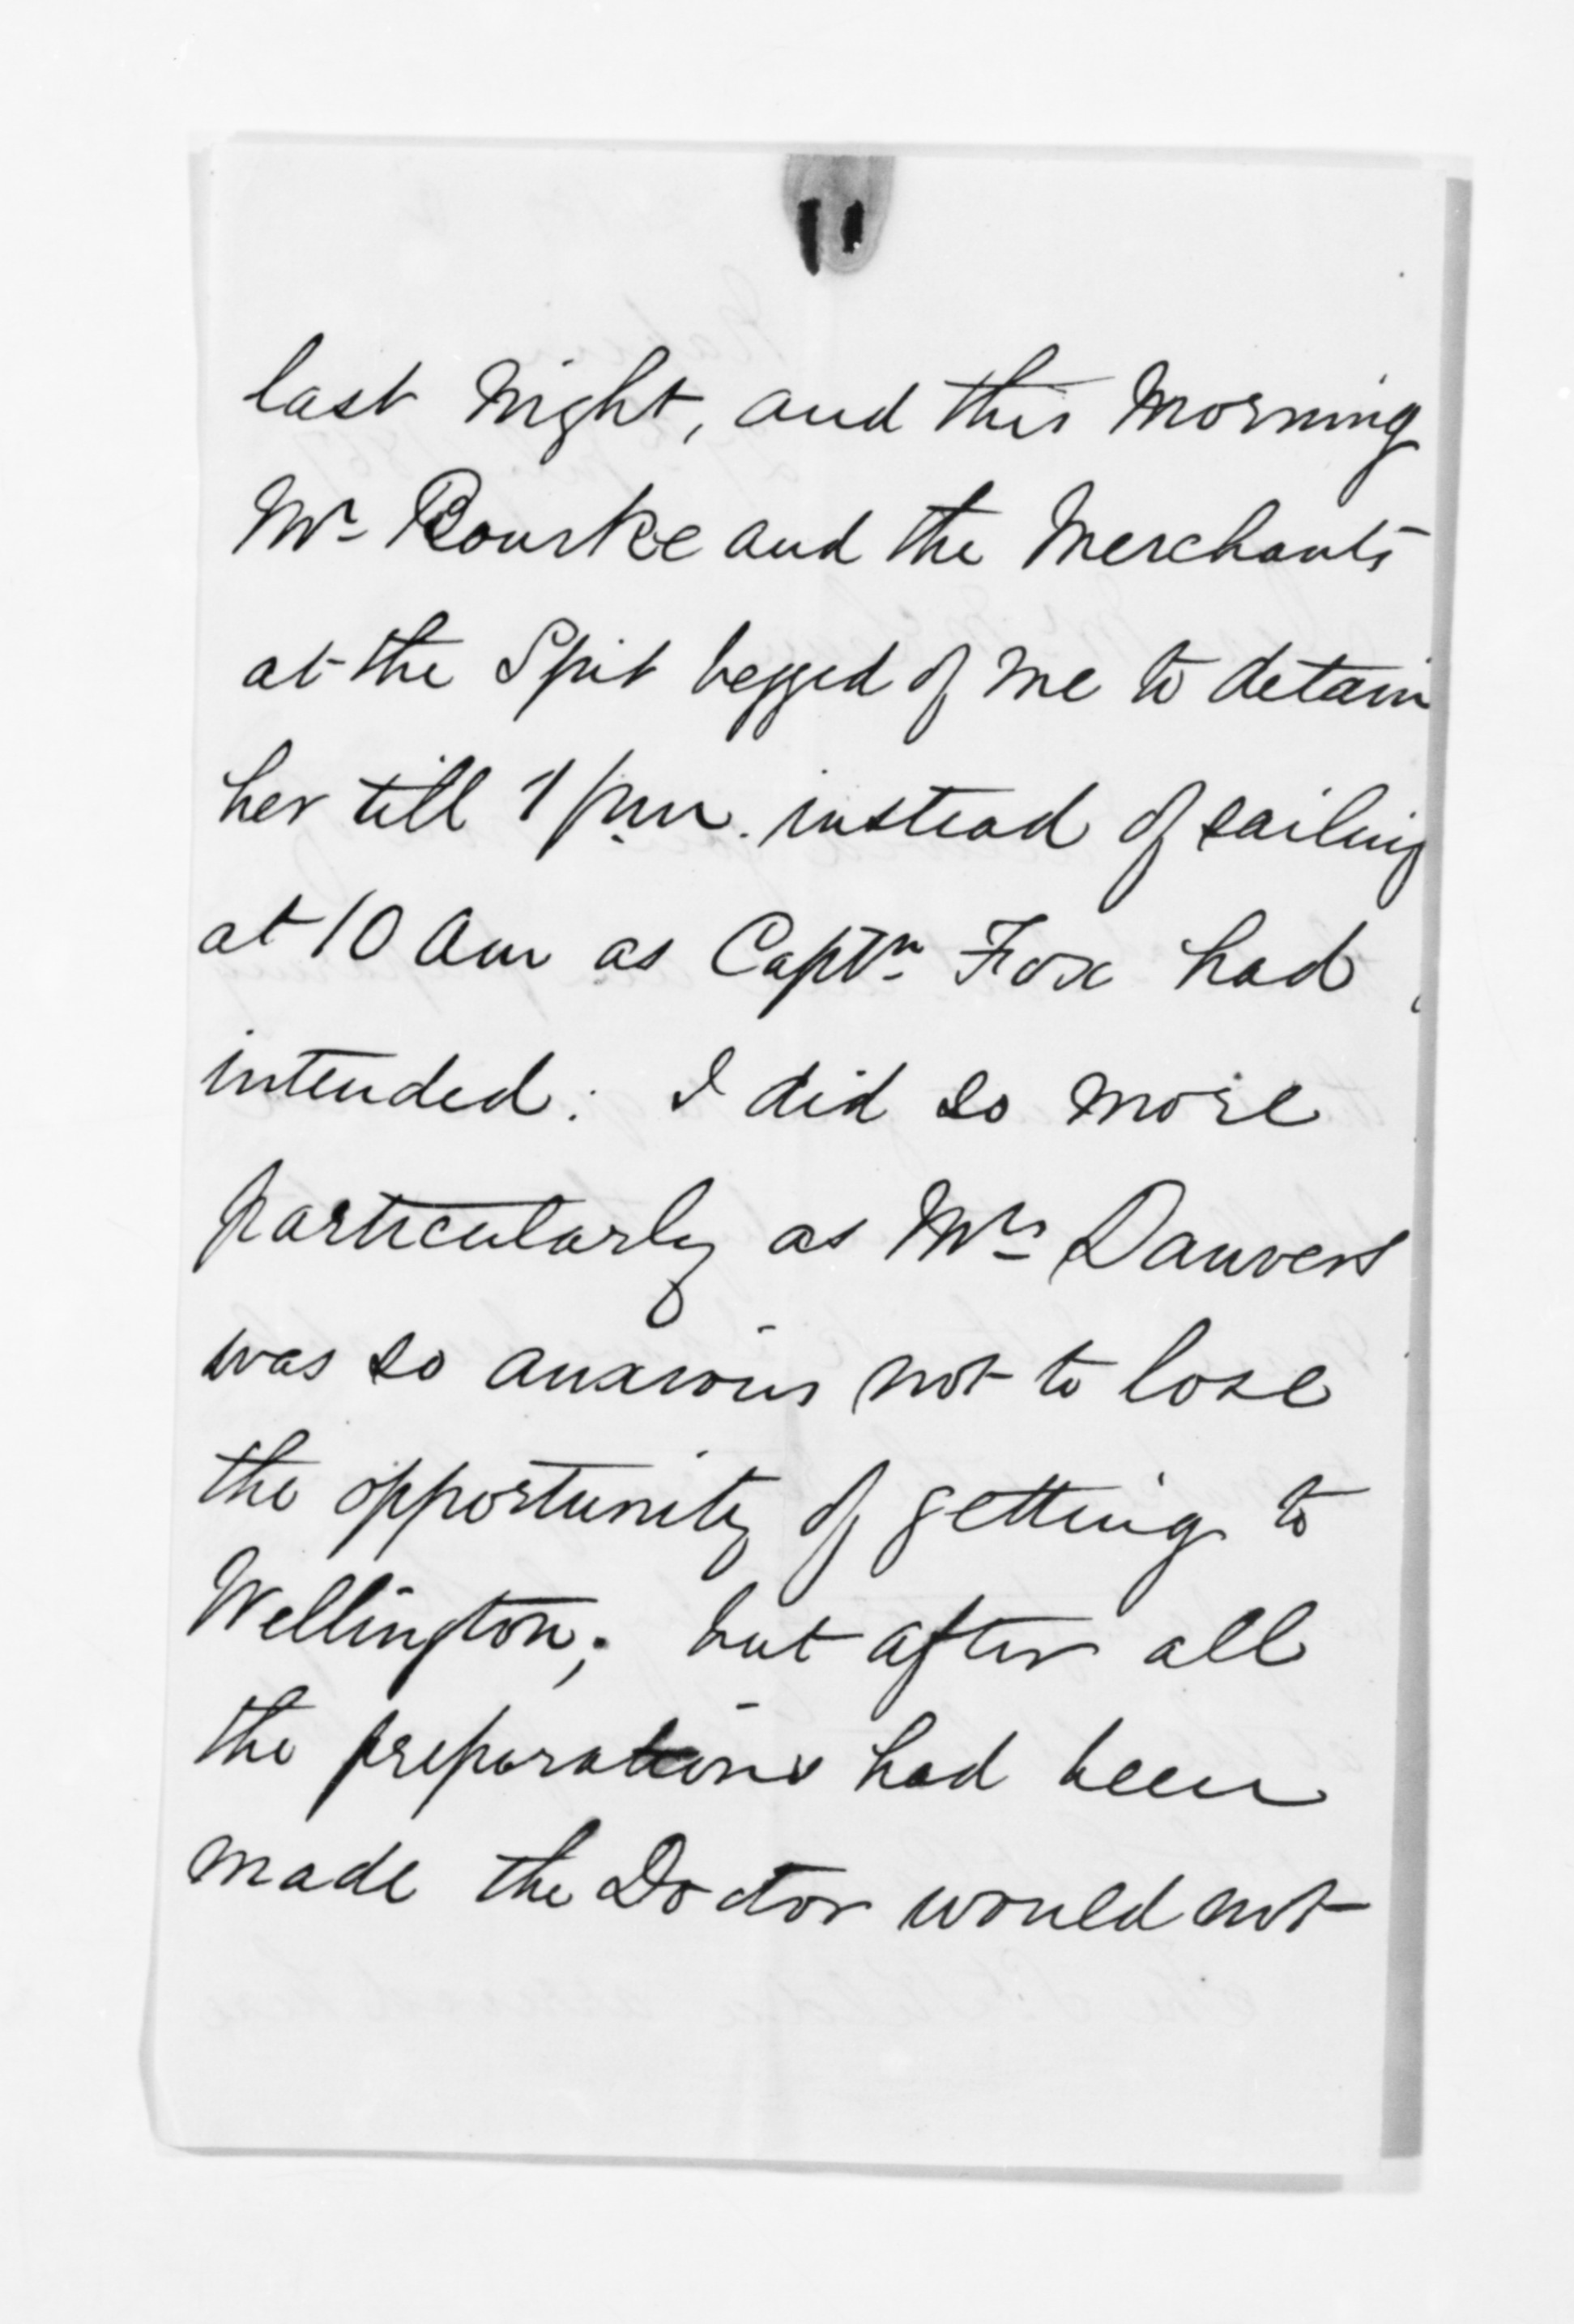 last night, and this morning
Mr Bourke and the Merchants
at the Spit begged of me to detain
her till 1 pm. instead of sailing
at 10 am as Captn Fox had
intended. I did so more
particularly as Mrs Danvers
was so anxious not to lose
the opportunity of getting to
Wellington; but after all
the preparations had been
made the Doctor would not